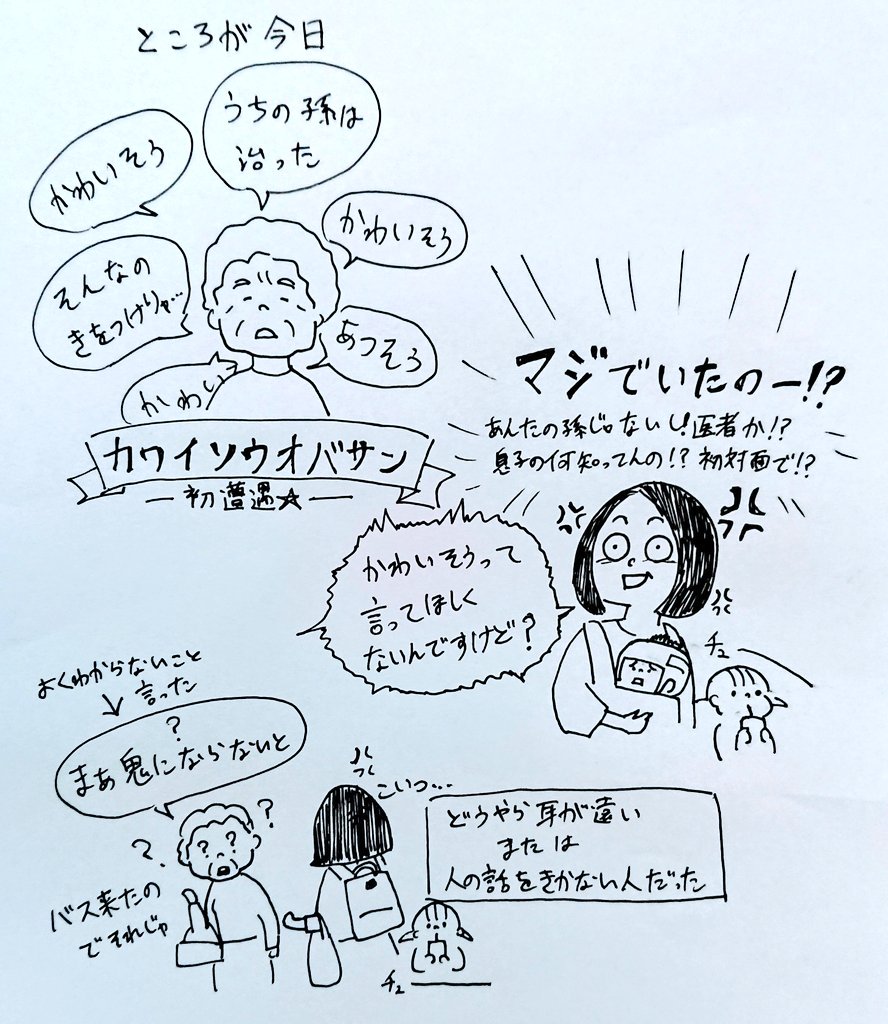 ところが今日
うちの孫は
治った
かわいそう
かわいそう
そんなの
きをつけりゃ…
あつそう
かわい
カワイソウオバサン
―初遭遇☆―
マジでいたのー!?
あんたの孫じゃないし!医者か!?
息子の何知ってんの!?初対面で!?
かわいそうって
言ってほしく
ないんですけど?
チュ
よくわからないこと
言った
?
まあ鬼にならないと
?
?
?
?
バス来たの
でそれじゃ
こいつ…
どうやら耳が遠い
または
人の話をきかない人だった
チュ